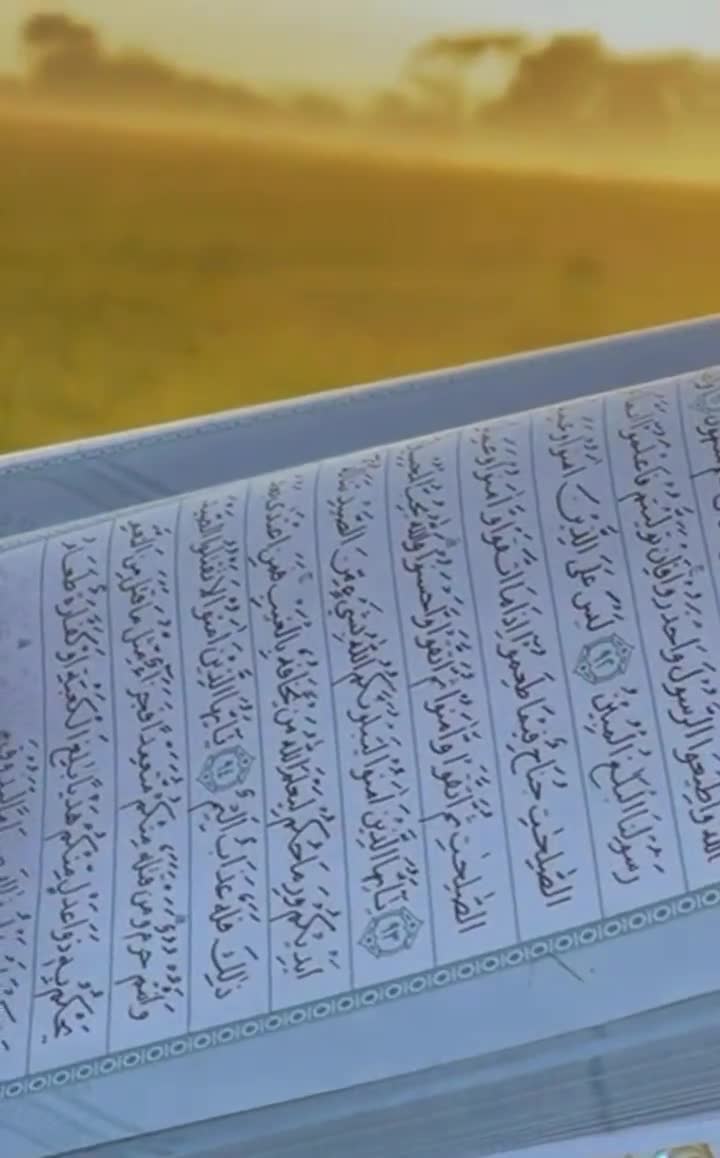 اللّٰهَ وَاَطِيْعُوا الرَّسُوْلَ وَاحْذَرُوْا ۚ فَاِنْ تَوَلَّيْتُمْ فَاعْلَمُوْٓا
رَسُوْلِنَا الْبَلٰغُ الْمُبِيْنُ ٩٢ لَيْسَ عَلَى الَّذِيْنَ اٰمَنُوْا
الصّٰلِحٰتِ جُنَاحٌ فِيْمَا طَعِمُوْٓا اِذَا مَا اتَّقَوْا وَّاٰمَنُوْا
الصّٰلِحٰتِ ثُمَّ اتَّقَوْا وَّاٰمَنُوْا ثُمَّ اتَّقَوْا وَّاَحْسَنُوْا ۗ وَاللّٰهُ يُحِبُّ
٩٣ يٰٓاَيُّهَا الَّذِيْنَ اٰمَنُوْا لَيَبْلُوَنَّكُمُ اللّٰهُ بِشَيْءٍ مِّنَ الصَّيْدِ تَنَالُهٗٓ
اَيْدِيْكُمْ وَرِمَاحُكُمْ لِيَعْلَمَ اللّٰهُ مَنْ يَّخَافُهٗ بِالْغَيْبِ ۚ فَمَنِ اعْتَدٰى
ذٰلِكَ فَلَهٗ عَذَابٌ اَلِيْمٌ ٩٤ يٰٓاَيُّهَا الَّذِيْنَ اٰمَنُوْا لَا تَقْتُلُوا الصَّيْدَ
وَاَنْتُمْ حُرُمٌ ۗ وَمَنْ قَتَلَهٗ مِنْكُمْ مُّتَعَمِّدًا فَجَزَاۤءٌ مِّثْلُ مَا قَتَلَ مِنَ النَّعَمِ
يَحْكُمُ بِهٖ ذَوَا عَدْلٍ مِّنْكُمْ هَدْيًا ۢ بٰلِغَ الْكَعْبَةِ اَوْ كَفَّارَةٌ طَعَامُ